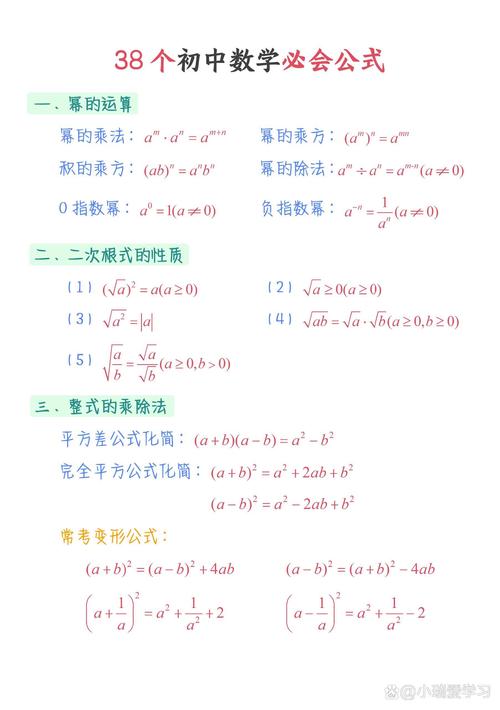 38个初中数学必会公式
一、幂的运算
幂的乘法：a^m·a^n=a^{m+n} 幂的乘方：(a^m)^n=a^{mn}
积的乘方：(ab)^n=a^n b^n 幂的除法：a^m÷a^n=a^{m-n}(a≠0)
0指数幂：a^0=1(a≠0) 负指数幂：a^{-n}=\frac{1}{a^n}(a≠0)
二、二次根式的性质
(1) (√a)^2=a(a≥0) (2) √a≥0(a≥0)
(3) √{a^2}=|a| (4) √{ab}=√a·√b(a≥0,b≥0)
(5) √{\frac{a}{b}}=\frac{√a}{√b}(a≥0,b>0)
三、整式的乘除法
平方差公式化简：(a+b)(a-b)=a^2-b^2
完全平方公式化简：(a+b)^2=a^2+2ab+b^2
(a-b)^2=a^2-2ab+b^2
常考变形公式：
(a+b)^2=(a-b)^2+4ab (a-b)^2=(a+b)^2-4ab
(a+\frac{1}{a})^2=a^2+\frac{1}{a^2}+2 (a-\frac{1}{a})^2=a^2+\frac{1}{a^2}-2
@小瑞爱学习